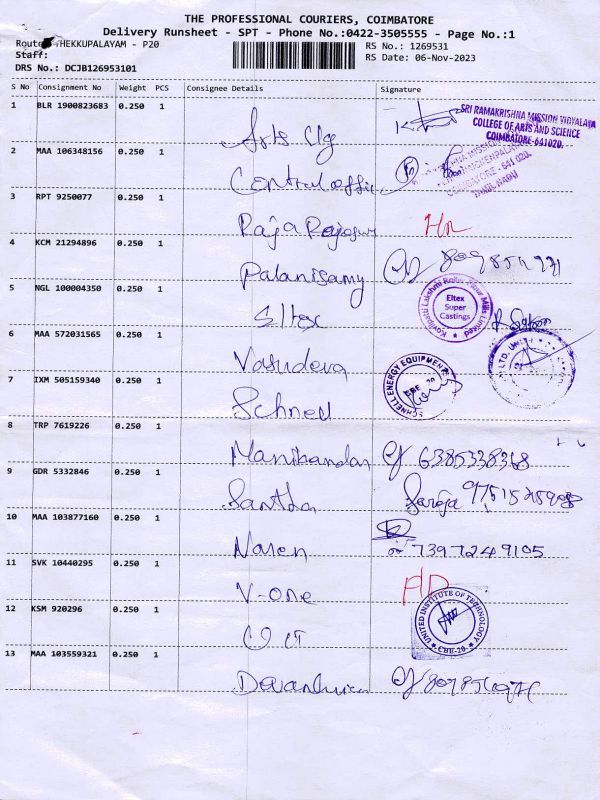 THE PROFESSIONAL COURIERS, COIMBATORE
Delivery Runsheet - SPT - Phone No.:0422-3505555 - Page No.:1
Route: THEKKUPALAYAM - P20
RS No.: 1269531
Staff:
RS Date: 06-Nov-2023
DRS No.: DCJB126953101
S No Consignment No Weight PCS Consignee Details Signature
1 BLR 1900823683 0.250 1 Arts Clg
SRI RAMAKRISHNA MISSION VIDYALAYA
COLLEGE OF ARTS AND SCIENCE
COIMBATORE-641020.
2 MAA 106348156 0.250 1 Central office
COIMBATORE - 641 020.
TAMIL NADU
3 RPT 9250077 0.250 1 Raja Rajeswi
4 KCM 21294896 0.250 1 Palanisamy
5 NGL 100004350 0.250 1 Eltex
Eltex
Super
Castings
6 MAA 572031565 0.250 1 Vasudeva
7 IXM 505159340 0.250 1 Schnell
SCHNELL ENERGY EQUIPMENTS
8 TRP 7619226 0.250 1 Manikandan 6385338368
9 GDR 5332846 0.250 1 Santha Saroja
10 MAA 103877160 0.250 1 Naren 7397249105
11 SVK 10440295 0.250 1 V-one
12 KSM 920296 0.250 1
UNITED INSTITUTE OF TECHNOLOGY
CBE-20
13 MAA 103559321 0.250 1